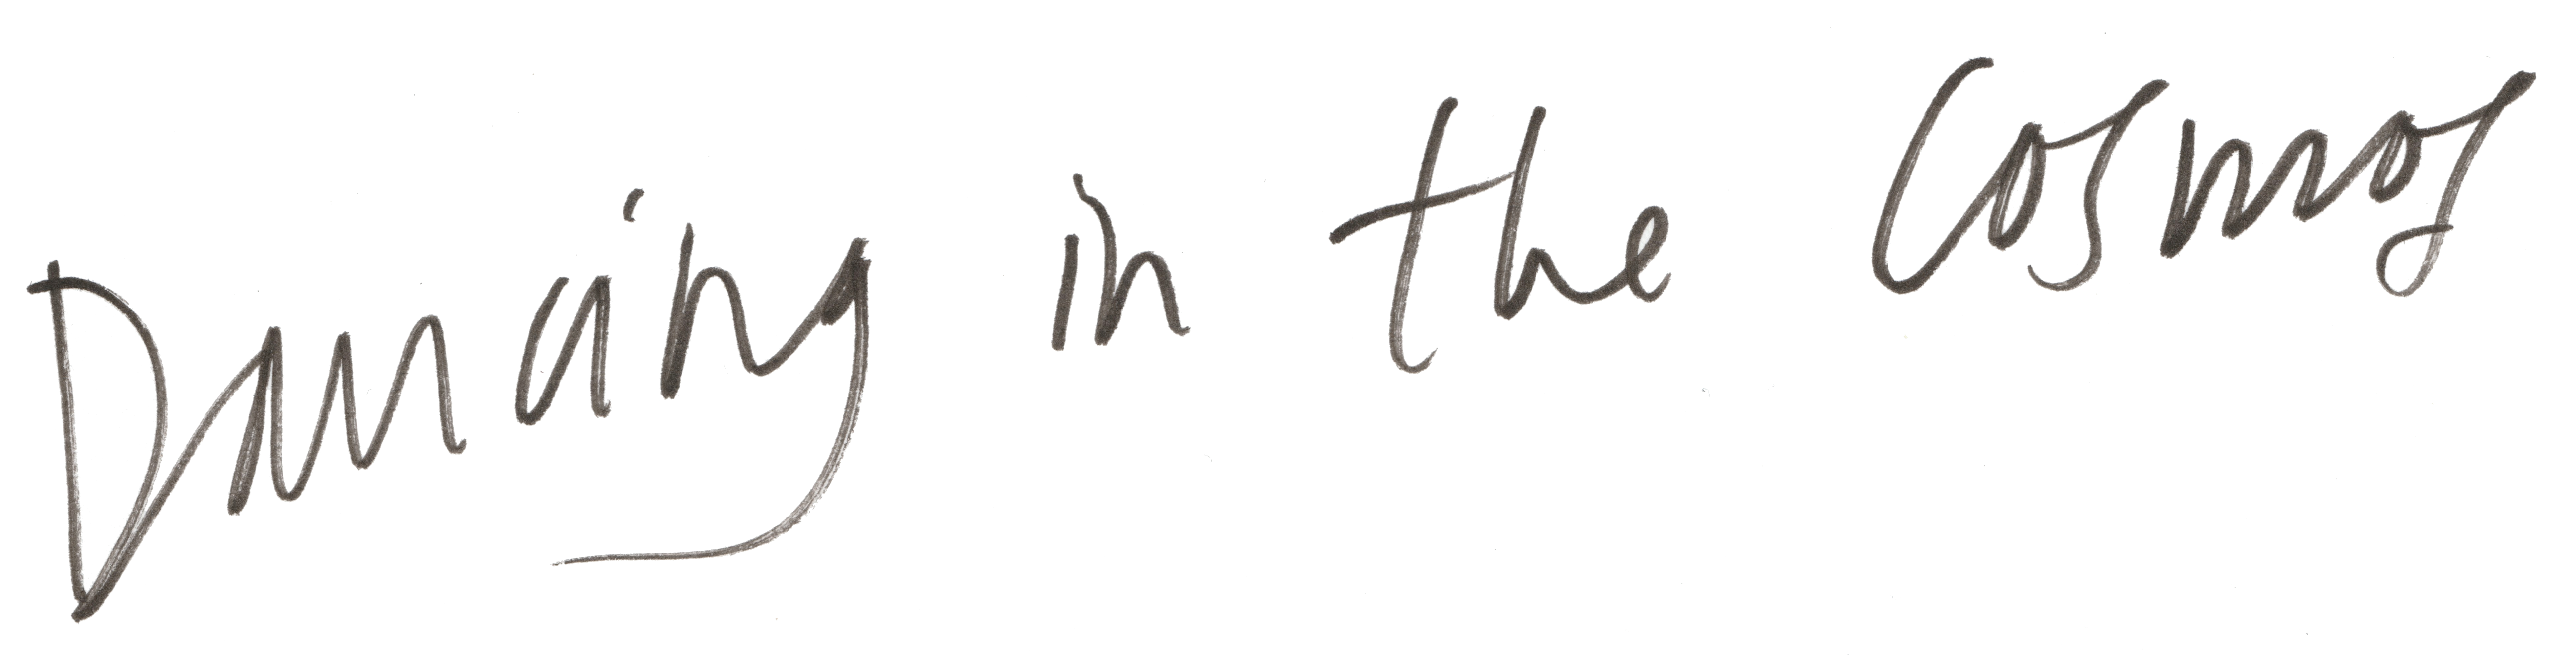 Dancing in the Cosmos